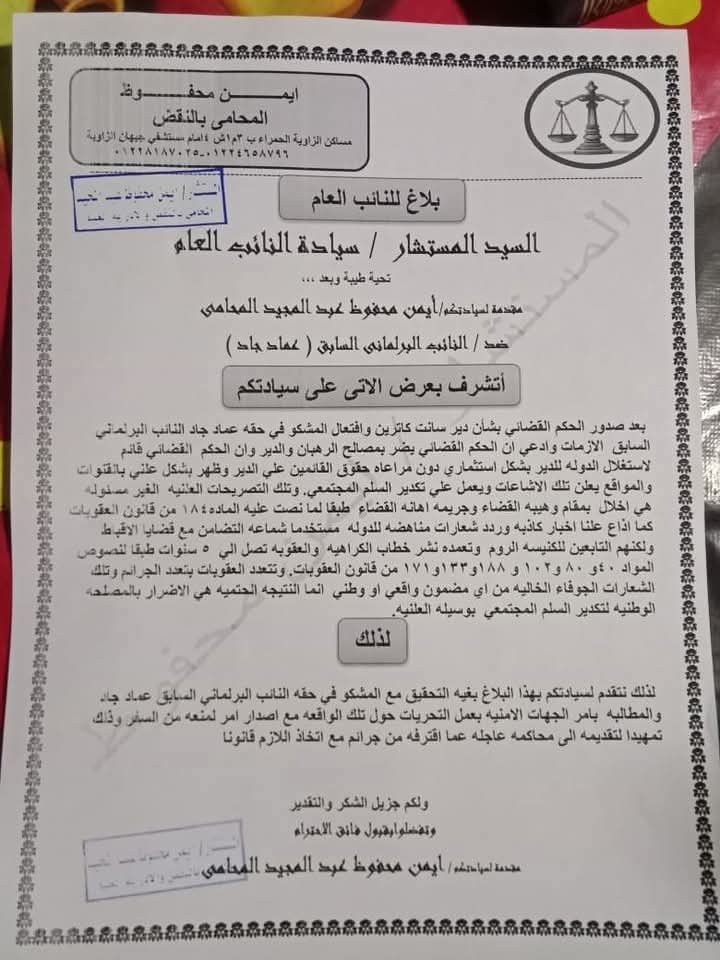 ايمـــن محفـــوظ
المحامى بالنقض
مساكن الزاوية الحمراء ب ٣م١ش ٤ امام مستشفي جيهان الزاوية
٠١٢٢٤٦٥٨٧٩٦-٠١٢٢٨١٨٧٠٢٥
المستشار / ايمن محفوظ عبد المجيد
المحامى بالنقض والادارية العليا
بلاغ للنائب العام
السيد المستشار / سيادة النائب العام
تحية طيبة وبعد ,,,
مقدمة لسيادتكم/أيمن محفوظ عبد المجيد المحامى
ضد / النائب البرلمانى السابق ( عماد جاد )
أتشرف بعرض الاتى على سيادتكم
بعد صدور الحكم القضائي بشأن دير سانت كاترين وافتعال المشكو في حقه عماد جاد النائب البرلماني
السابق الازمات وادعي ان الحكم القضائي يضر بمصالح الرهبان والدير وان الحكم القضائي قائم
لاستغلال الدوله للدير بشكل استثماري دون مراعاه حقوق القائمين علي الدير وظهر بشكل علني بالقنوات
والمواقع يعلن تلك الاشاعات ويعمل علي تكدير السلم المجتمعي. وتلك التصريحات العلنيه الغير مسئوله
هي اخلال بمقام وهيبه القضاء وجريمه اهانه القضاء طبقا لما نصت عليه الماده١٨٤ من قانون العقوبات
كما اذاع علنا اخبار كاذبه وردد شعارات مناهضه للدوله مستخدما شماعه التضامن مع قضايا الاقباط
ولكنهم التابعين للكنيسه الروم وتعمده نشر خطاب الكراهيه والعقوبه تصل الي ٥ سنوات طبقا لنصوص
المواد ٤٠و ٨٠ و١٠٢ و ١٨٨ و١٣٣و١٧١ من قانون العقوبات. وتتعدد العقوبات بتعدد الجرائم وتلك
الشعارات الجوفاء الخاليه من اي مضمون واقعي او وطني انما النتيجه الحتميه هي الاضرار بالمصلحه
الوطنيه لتكدير السلم المجتمعي بوسيله العلنيه.
لذلك
لذلك نتقدم لسيادتكم بهذا البلاغ بغيه التحقيق مع المشكو في حقه النائب البرلماني السابق عماد جاد
والمطالبه بامر الجهات الامنيه بعمل التحريات حول تلك الواقعه مع اصدار امر لمنعه من السفر وذلك
تمهيدا لتقديمه الى محاكمه عاجله عما اقترفه من جرائم مع اتخاذ اللازم قانونا
ولكم جزيل الشكر والتقدير
وتفضلوا بقبول فائق الاحترام
مقدمة لسيادتكم/ أيمن محفوظ عبد المجيد المحامى